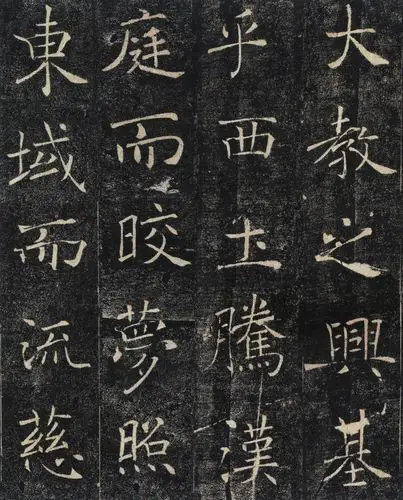 大教之興基
乎西土騰漢
庭而皎夢照
東域而流慈